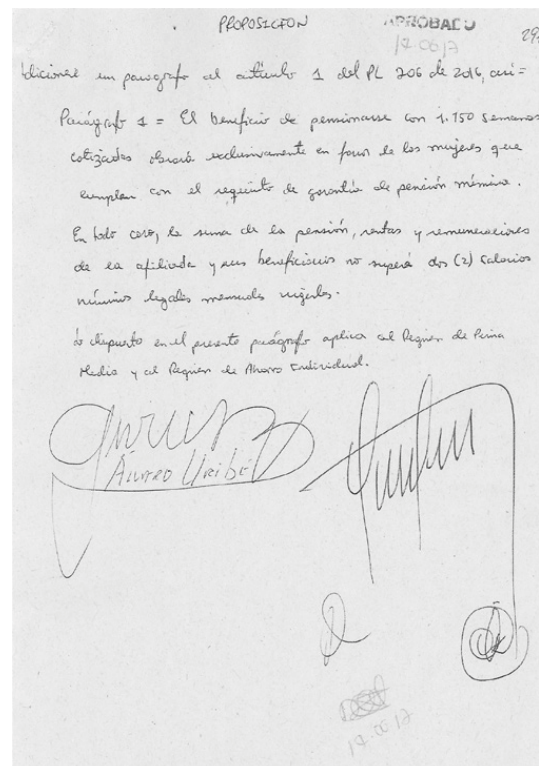 PROPOSICION
APROBADO
14.06.17
Adicionese un paragrafo al artículo 1 del PL 206 de 2016, asi =
Parágrafo 1 = El beneficio de pensionarse con 1.150 semanas
cotizadas obrará exclusivamente en favor de las mujeres que
cumplan con el requisito de garantía de pensión mínima.
En todo caso, la suma de la pensión, rentas y remuneraciones
de la afiliada y sus beneficiarios no superá dos (2) salarios
mínimos legales mensuales vigentes.
Lo dispuesto en el presente parágrafo aplica al Regimen de Prima
Media y al Regimen de Ahorro Individual.
Alvaro Uribe